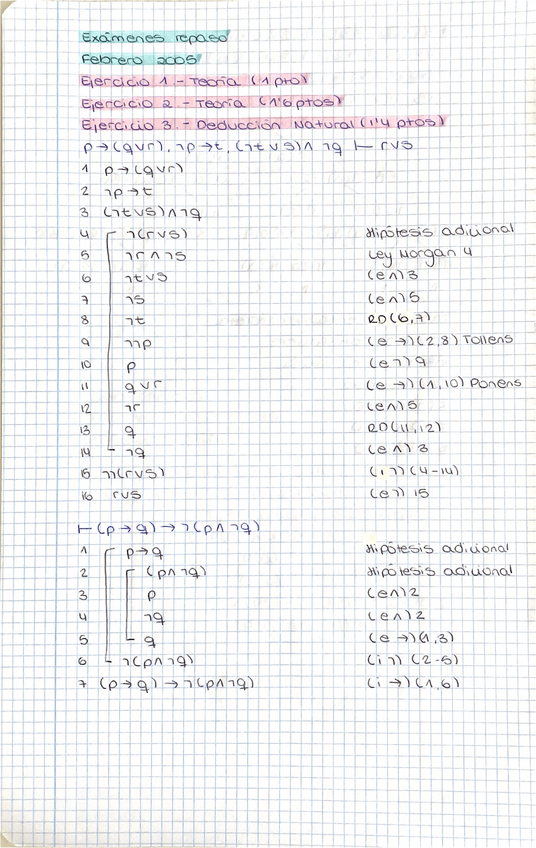 Exámenes repaso
Febrero 2005
Ejercicio 1 - Teoría (1 pto)
Ejercicio 2 - Teoría (1'6 ptos)
Ejercicio 3 - Deducción Natural (1'4 ptos)
p→(q∨r), ¬p→t, (¬t∨s)∧¬q ⊢ r∨s
1 p→(q∨r)
2 ¬p→t
3 (¬t∨s)∧¬q
4 ¬(r∨s) Hipótesis adicional
5 ¬r∧¬s Ley Morgan 4
6 ¬t∨s (e∧)3
7 ¬s (e∧)5
8 ¬t RD(6,7)
9 ¬¬p (e→)(2,8) Tollens
10 p (e¬)9
11 q∨r (e→)(1,10) Ponens
12 ¬r (e∧)5
13 q RD(11,12)
14 ¬q (e∧)3
15 ¬¬(r∨s) (i¬)(4-14)
16 r∨s (e¬) 15
⊢(p→q)→¬(p∧¬q)
1 p→q Hipótesis adicional
2 (p∧¬q) Hipótesis adicional
3 p (e∧)2
4 ¬q (e∧)2
5 q (e→)(1,3)
6 ¬(p∧¬q) (i¬) (2-5)
7 (p→q)→¬(p∧¬q) (i→)(1,6)